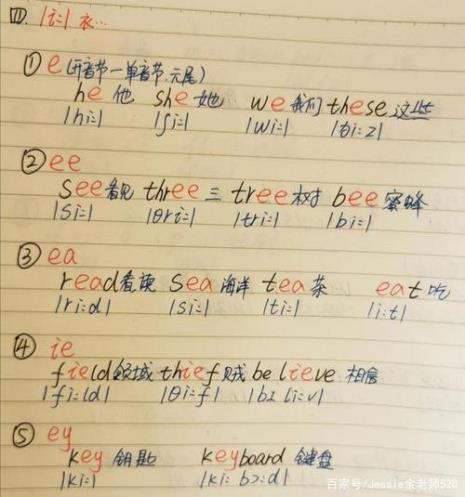 四. /i:/ 衣…
① e (开音节一单音节.元尾)
he 他 she 她 we 我们 these 这些
/hi:/ /ʃi:/ /wi:/ /ði:z/
② ee
see 看见 three 三 tree 树 bee 蜜蜂
/si:/ /θri:/ /tri:/ /bi:/
③ ea
read 看读 sea 海洋 tea 茶 eat 吃
/ri:d/ /si:/ /ti:/ /i:t/
④ ie
field 领域 thief 贼 believe 相信
/fi:ld/ /θi:f/ /bɪ li:v/
⑤ ey
key 钥匙 keyboard 键盘
/ki:/ /ki: bɔ:d/
百家号/Jessie余老师520